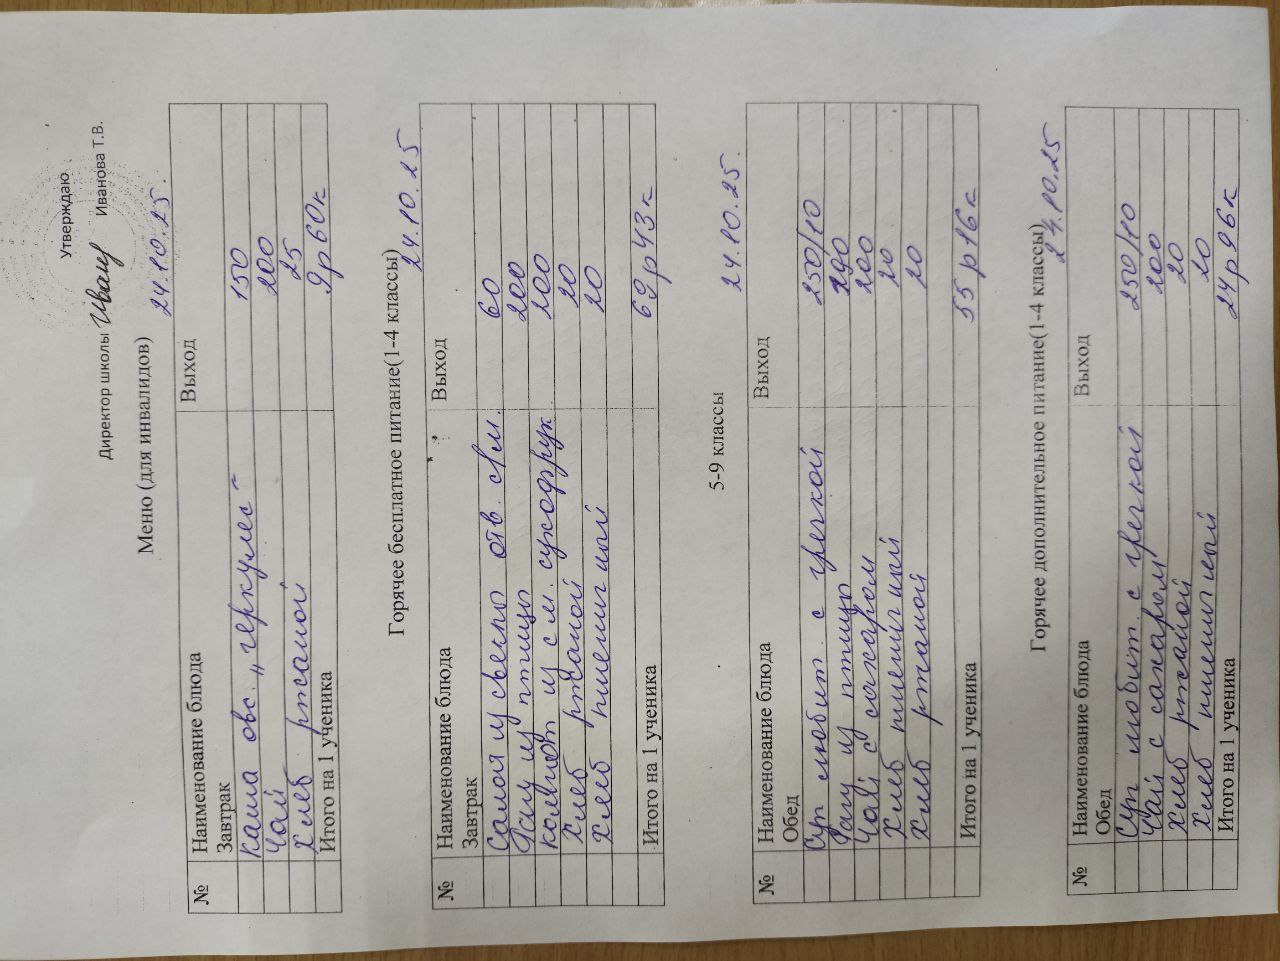 Утверждаю
Директор школы Иванова Т.В.
Меню (для инвалидов)
24.10.25.
№ Наименование блюда Выход
Завтрак
каша овс. „геркулес" 150
чай 200
хлеб ржаной 25
Итого на 1 ученика 9р 60к
Горячее бесплатное питание(1-4 классы)
24.10.25
№ Наименование блюда Выход
Завтрак
Салат из свеклы отв. 60
Рагу из птицы 200
компот из см. сухофрук 200
Хлеб ржаной 20
Хлеб пшеничный 20
Итого на 1 ученика 69р43к
5-9 классы
24.10.25.
№ Наименование блюда Выход
Обед
Суп любит. с гречкой 250/10
Рагу из птицы
Чай с сахаром 200
Хлеб пшеничный 20
Хлеб ржаной 20
Итого на 1 ученика 55р16к
Горячее дополнительное питание(1-4 классы)
24.10.25
№ Наименование блюда Выход
Обед
Суп любит. с гречкой 250/10
Чай с сахаром 200
Хлеб ржаной 20
Хлеб пшеничный 20
Итого на 1 ученика 24р96к